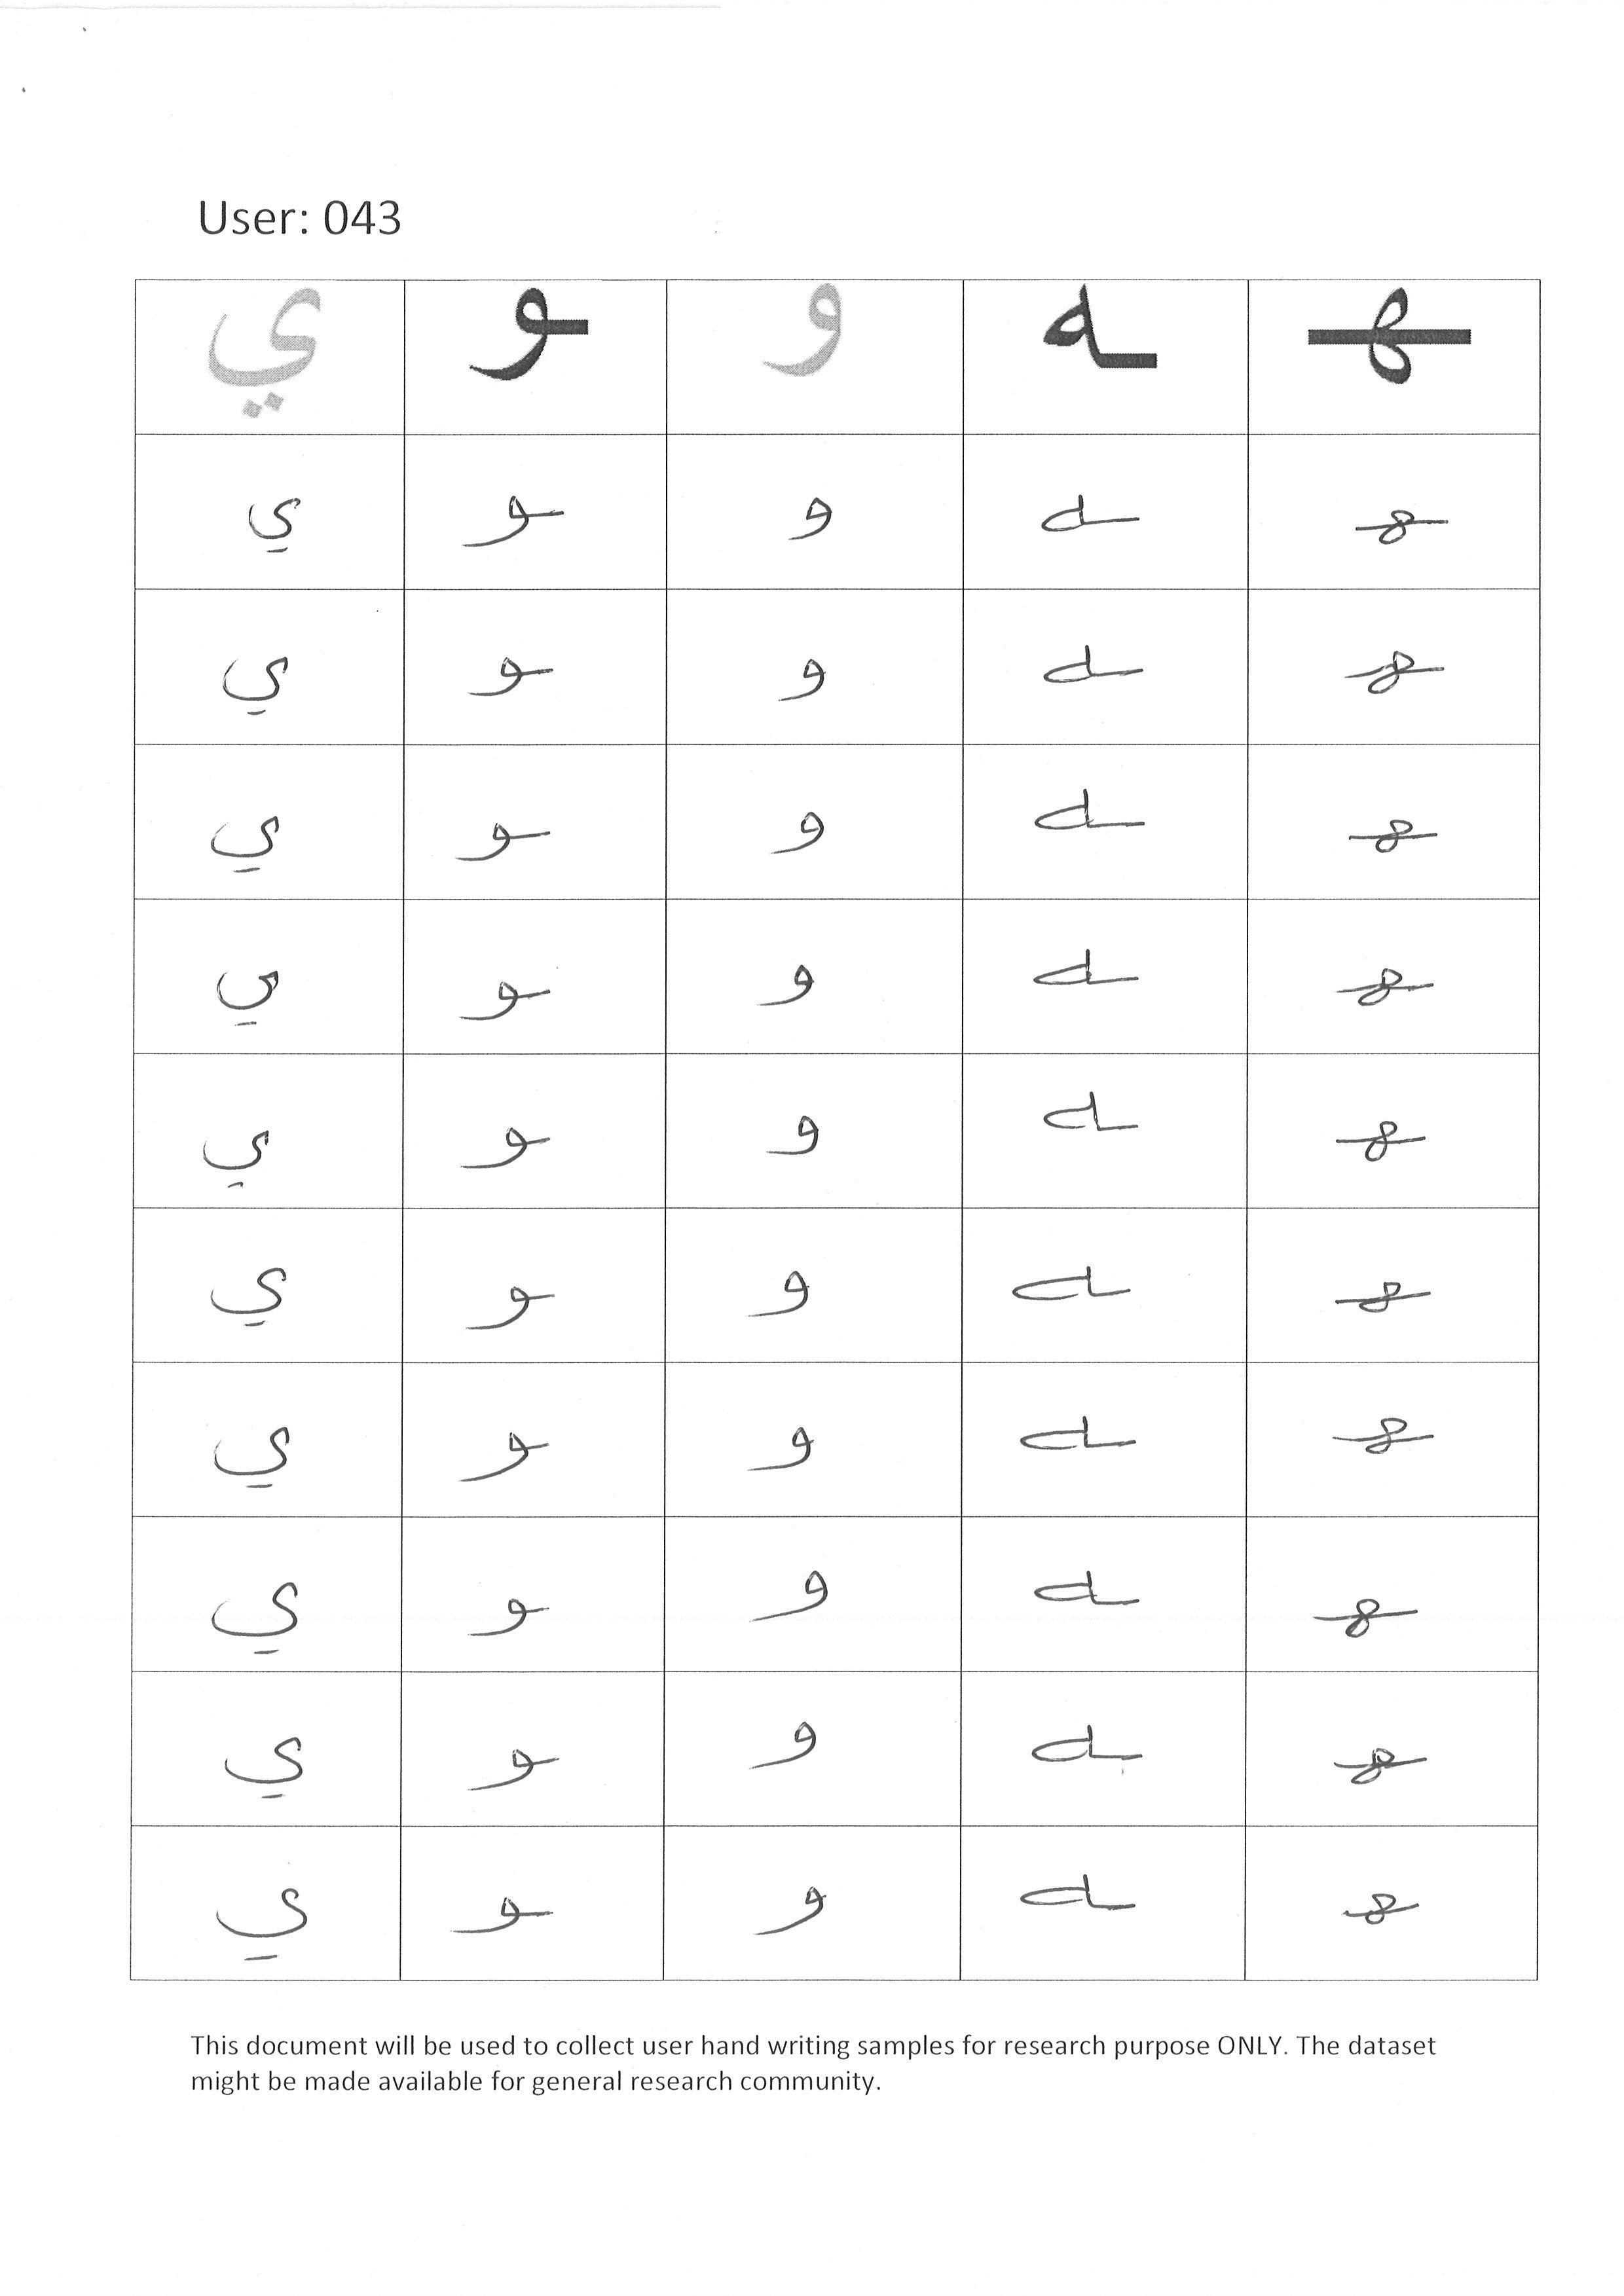 User: 043
ي ـو و ـه ـهـ
ي ـو و ـه ـهـ
ي ـو و ـه ـهـ
ي ـو و ـه ـهـ
ي ـو و ـه ـهـ
ي ـو و ـه ـهـ
ي ـو و ـه ـهـ
ي ـو و ـه ـهـ
ي ـو و ـه ـهـ
ي ـو و ـه ـهـ
ي ـو و ـه ـهـ
This document will be used to collect user hand writing samples for research purpose ONLY. The dataset
might be made available for general research community.